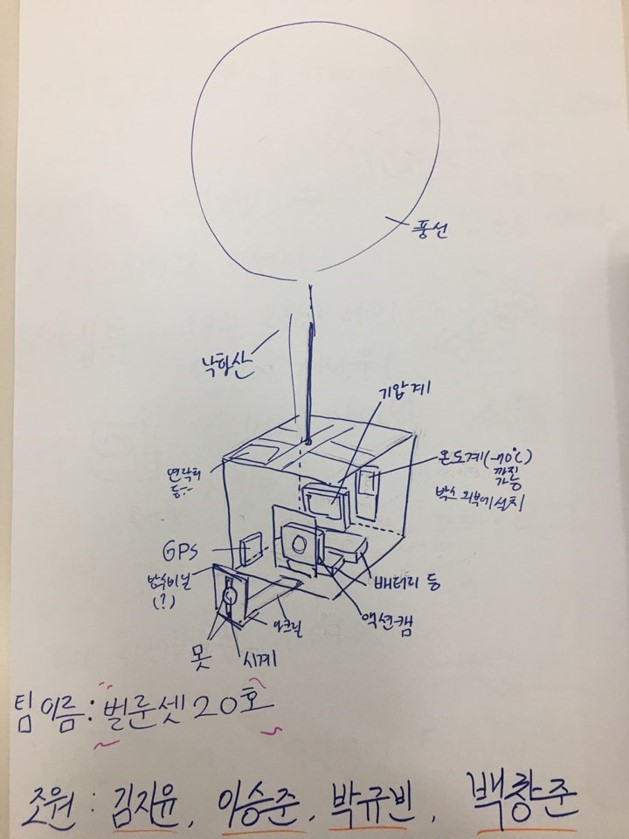 풍선
낙하산
기압계
온도계(-70℃)
까지
가능
박스 외부에 설치
연락처
등..
GPS
방수비닐
(?)
배터리 등
액션캠
아크릴
못
시계
팀이름: 벌룬셋 20호
조원 : 김지윤, 이승준, 박규빈, 백창준